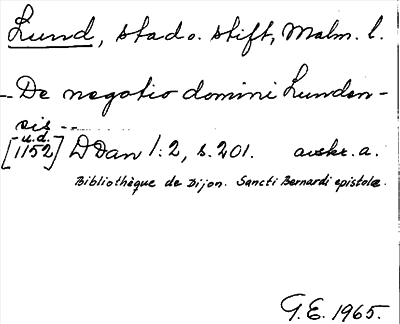 Lund, stad o. stift, Malm. l.
- De negotio domini Lunden-
sis --
- u.d.
[1152] DDan 1:2, s. 201. avskr. a.
Bibliothèque de Dijon. Sancti Bernardi epistolæ.
G.E. 1965.